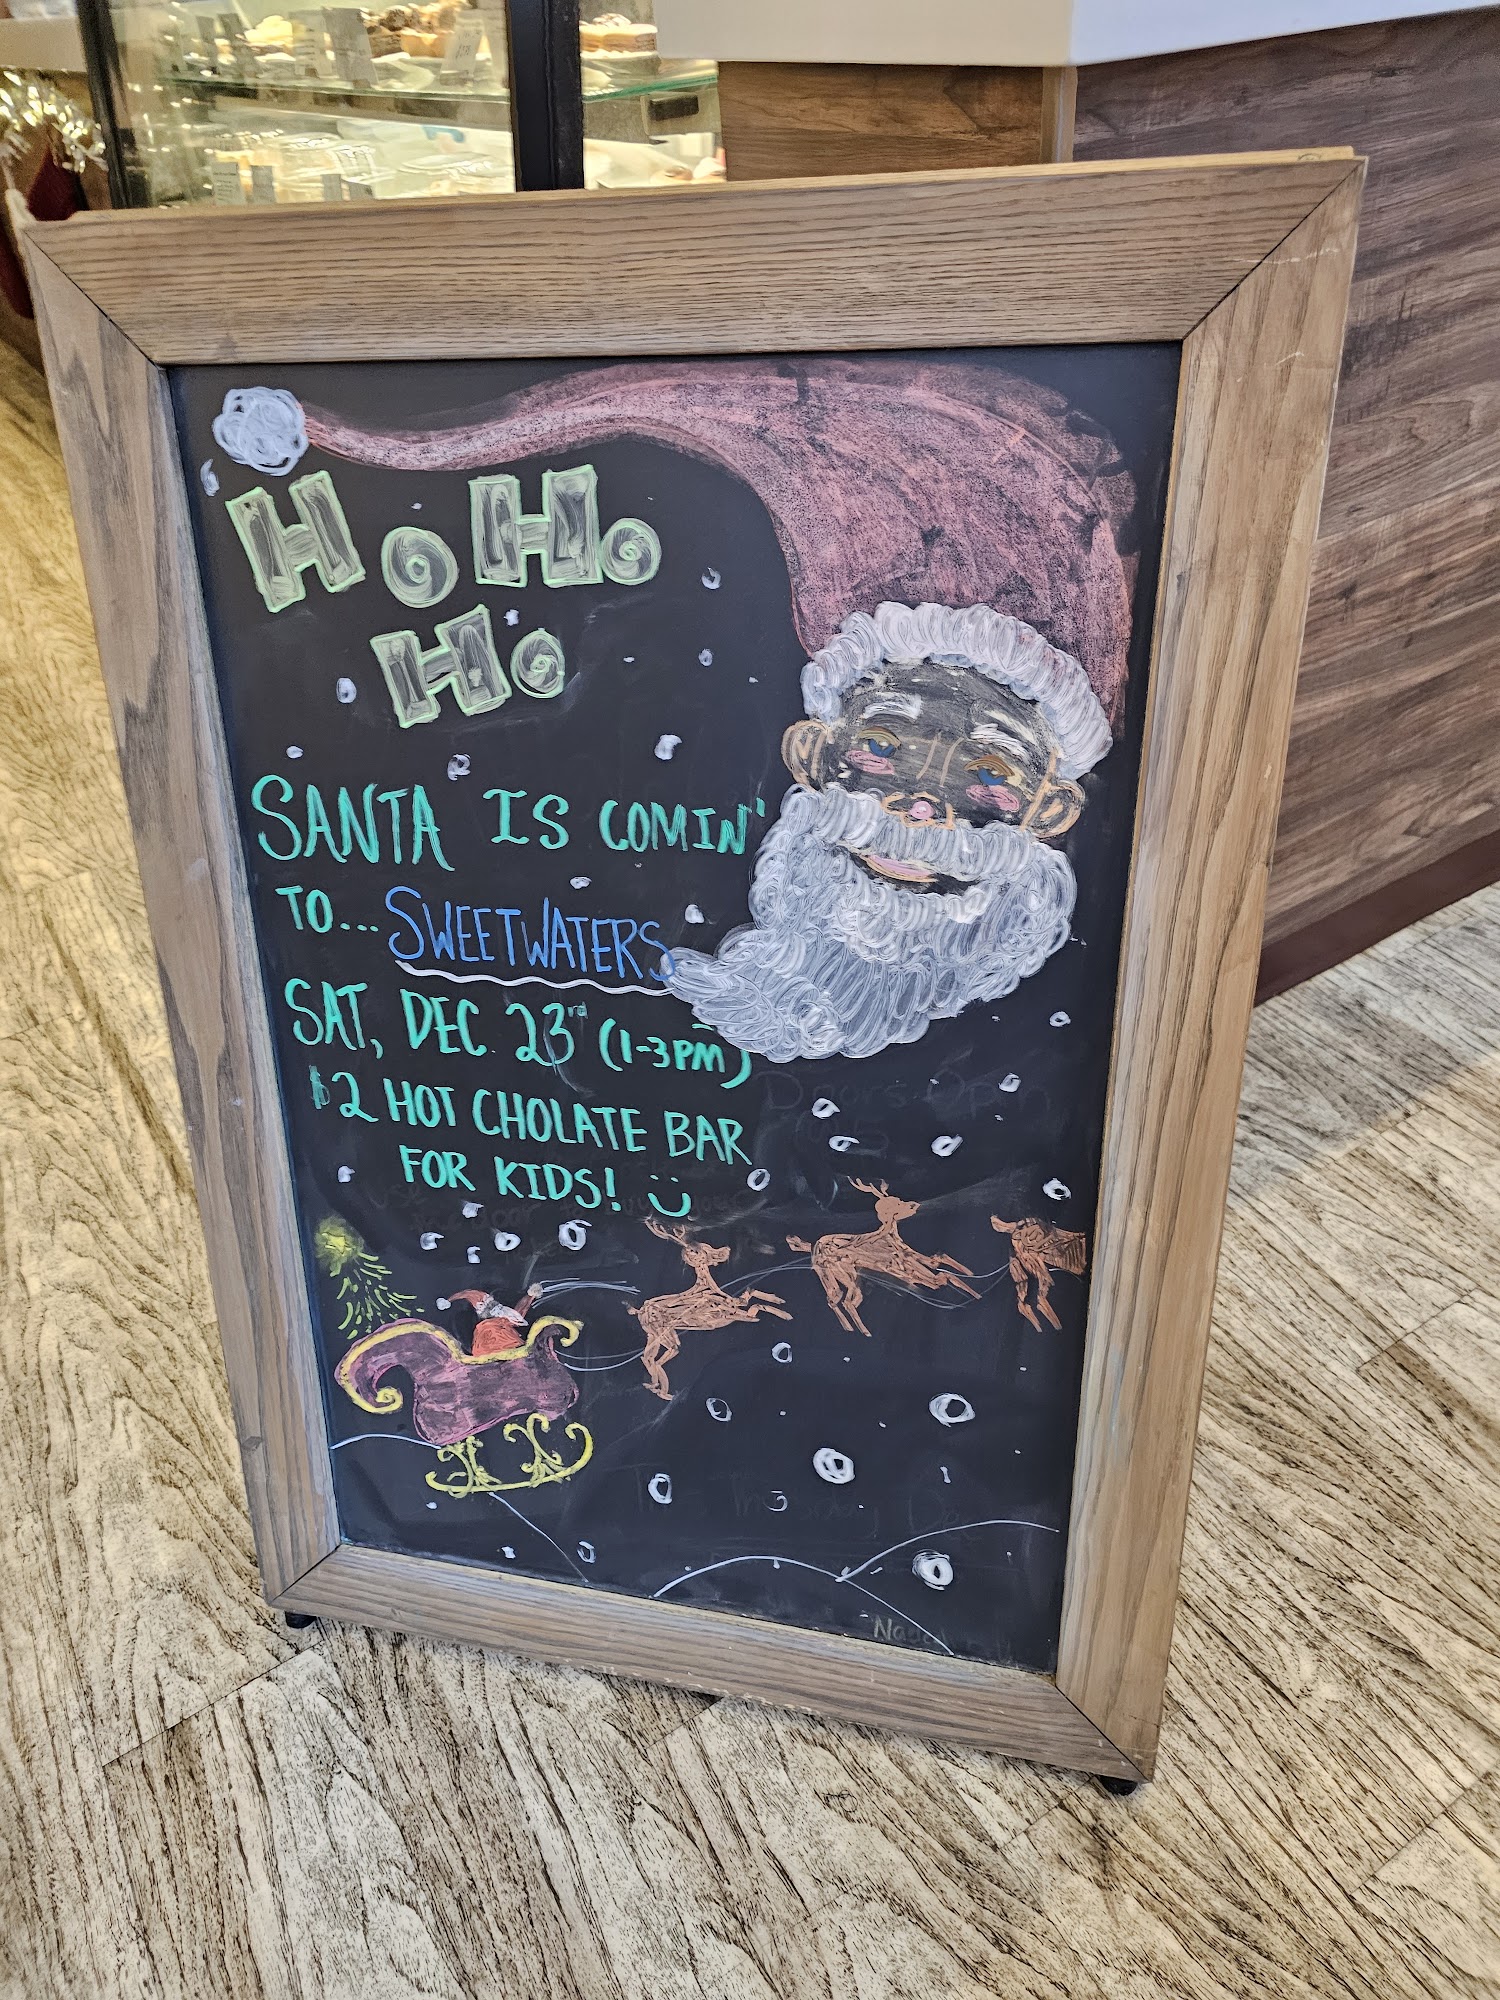 HoHo
Ho
SANTA IS COMIN'
TO... SWEETWATERS
SAT, DEC. 23rd (1-3PM)
$2 HOT CHOLATE BAR
FOR KIDS! :)